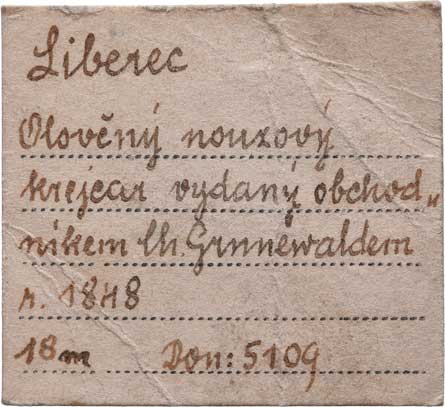 Liberec
Olověný nouzový
krejcar vydaný obchod„
níkem Ch. Grünewaldem
r. 1848
18m Don: 5109